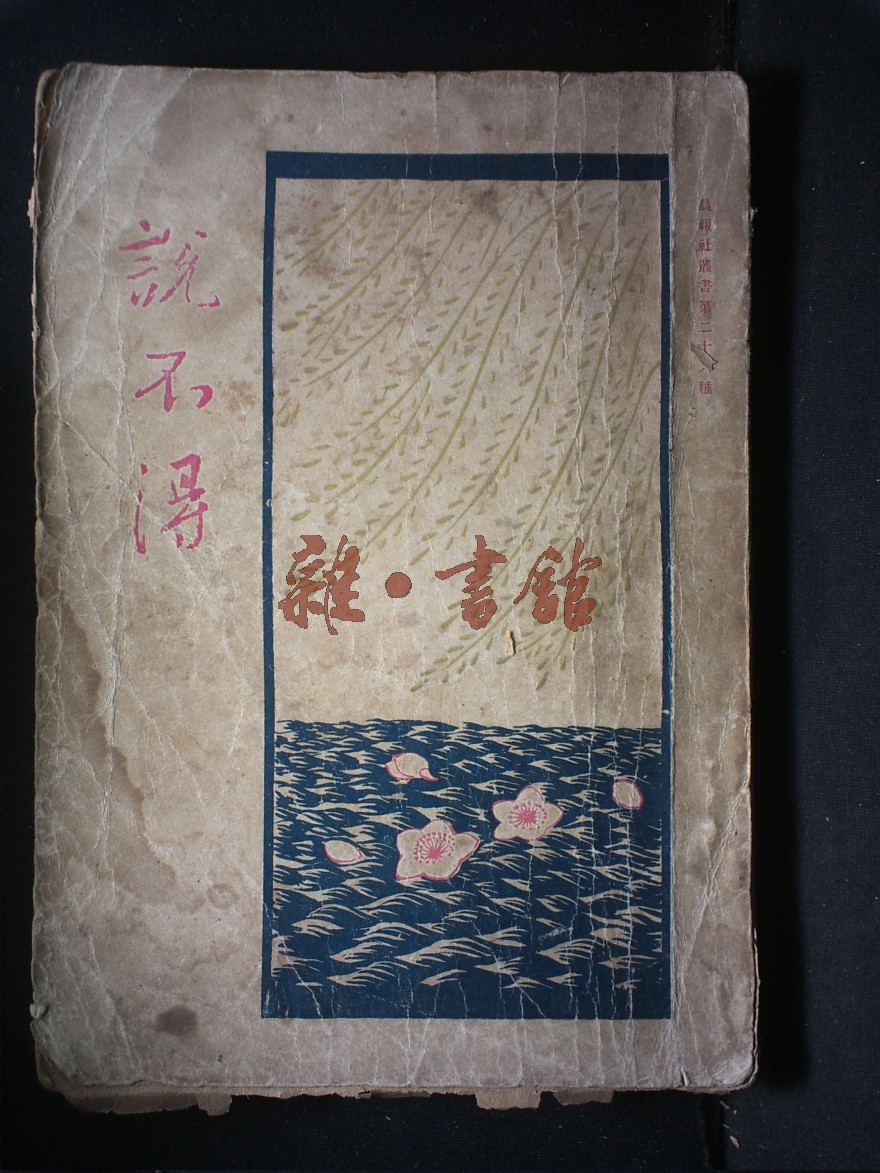 晨報社叢書第二十八種
說不得
雜·書館